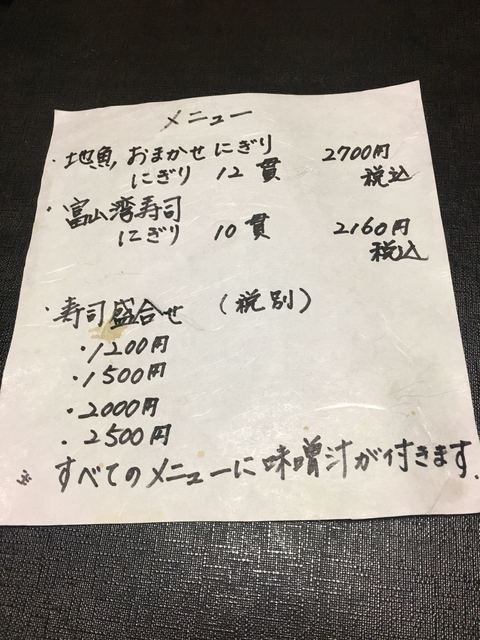 メニュー
・地魚おまかせにぎり 2700円
にぎり 12貫 税込
・富山湾寿司
にぎり 10貫 2160円
税込
・寿司盛合せ (税別)
・1200円
・1500円
・2000円
・2500円
※すべてのメニューに味噌汁が付きます.